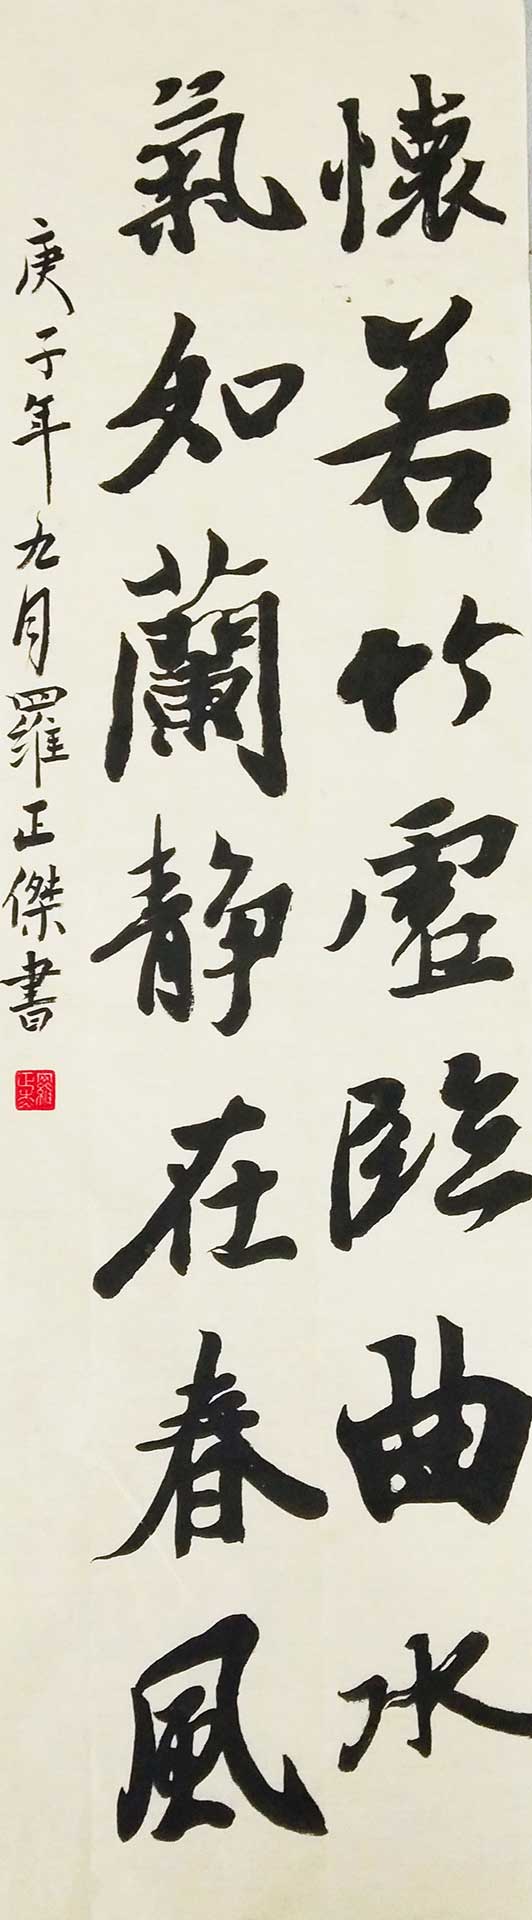 懷若竹虛臨曲水
氣如蘭靜在春風
庚子年九月羅正傑書